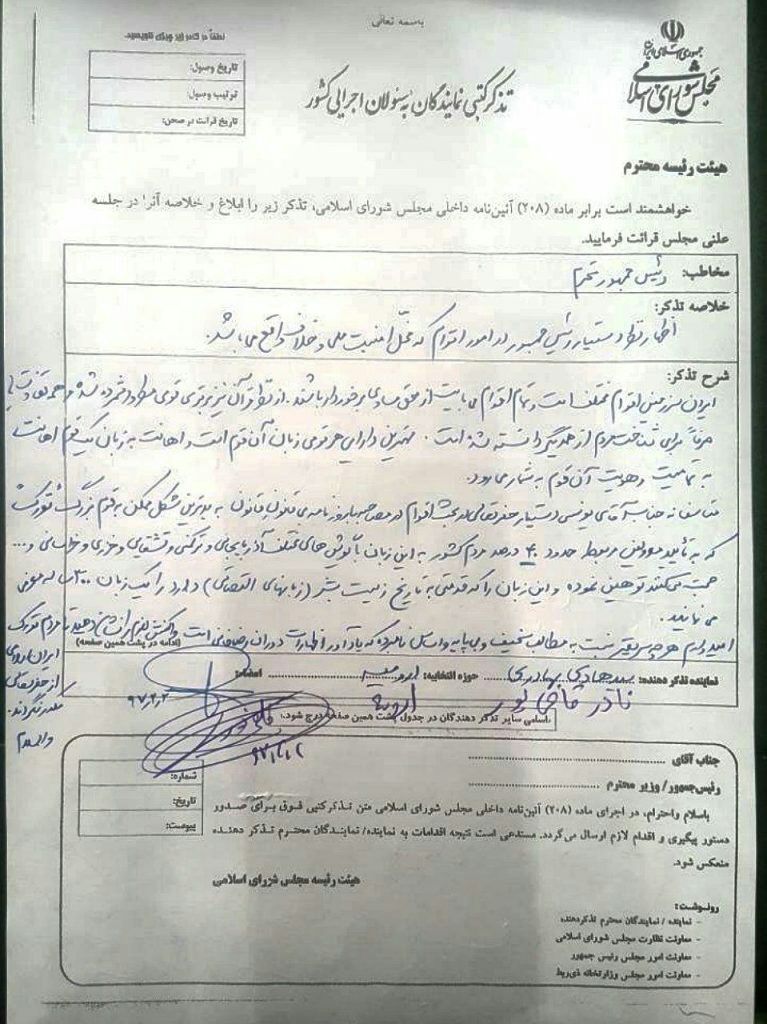 باسمه تعالی
جمهوری اسلامی ایران
مجلس شورای اسلامی
تذکر کتبی نمایندگان به مسئولان اجرایی کشور
لطفاً در کادر زیر چیزی ننویسید.
تاریخ وصول:
ترتیب وصول:
تاریخ قرائت در صحن:
هیئت رئیسه محترم
خواهشمند است برابر ماده (۲۰۸) آئین‌نامه داخلی مجلس شورای اسلامی، تذکر زیر را ابلاغ و خلاصه آنرا در جلسه
علنی مجلس قرائت فرمایید.
مخاطب: رئیس جمهور محترم
خلاصه تذکر:
اظهارنظر دستیار رئیس جمهور در امور اقوام که مخل امنیت ملی و خلاف واقع می باشد.
شرح تذکر:
ایران سرزمین اقوام مختلف است و تمام اقوام می بایست از حقوق مساوی برخوردار باشند. از نظر قرآن نیز برتری قومی مطرود شمرده شده و همه تفاوت ها
صرفاً برای شناخت مردم از همدیگر دانسته شده است. مهمترین دارایی هر قومی زبان آن قوم است و اهانت به زبان یک قوم اهانت
به تمامیت و هویت آن قوم به شمار می رود.
متاسفانه جناب آقای یونسی دستیار حضرتعالی در بحث اقوام در مصاحبه با روزنامه ی قانون به بدترین شکل ممکن به قوم بزرگ تورک
که به تأیید مسئولین مرتبط حدود ۴۰ درصد مردم کشور به این زبان با گویش های مختلف آذربایجانی و ترکمنی و قشقایی و خزری و خراسانی و ...
صحبت می کنند توهین نموده و این زبان را که قدمتی به تاریخ زیست بشر (زبانهای التصاقی) دارد را یک زبان ۳۰۰ ساله معرفی
می نمایند.
امیدوارم هر چه سریعتر نسبت به مطالب سخیف و بی پایه و اساس نامبرده که یادآور اظهارات دوران رضاخانی است واکنش لازم را نشان دهید تا مردم تورک
ایران
از حضرتعالی
مکدر نگردند.
والسلام
(ادامه در پشت همین صفحه)
نماینده تذکر دهنده: سید هادی بهادری حوزه انتخابیه: ارومیه امضاء:
۹۷,۲,۲
نادر قاضی پور ارومیه
اسامی سایر تذکر دهندگان در جدول پشت همین صفحه درج شود.
جناب آقای
رئیس‌جمهور/ وزیر محترم
شماره:
تاریخ:
پیوست:
باسلام واحترام، در اجرای ماده (۲۰۸) آئین‌نامه داخلی مجلس شورای اسلامی متن تذکر کتبی فوق برای صدور
دستور پیگیری و اقدام لازم ارسال می‌گردد. مستدعی است نتیجه اقدامات به نماینده/ نمایندگان محترم تذکر دهنده
منعکس شود.
هیئت رئیسه مجلس شورای اسلامی
رونوشت:
- نماینده / نمایندگان محترم تذکردهنده
- معاونت نظارت مجلس شورای اسلامی
- معاونت امور مجلس رئیس جمهور
- معاونت امور مجلس وزارتخانه ذی‌ربط